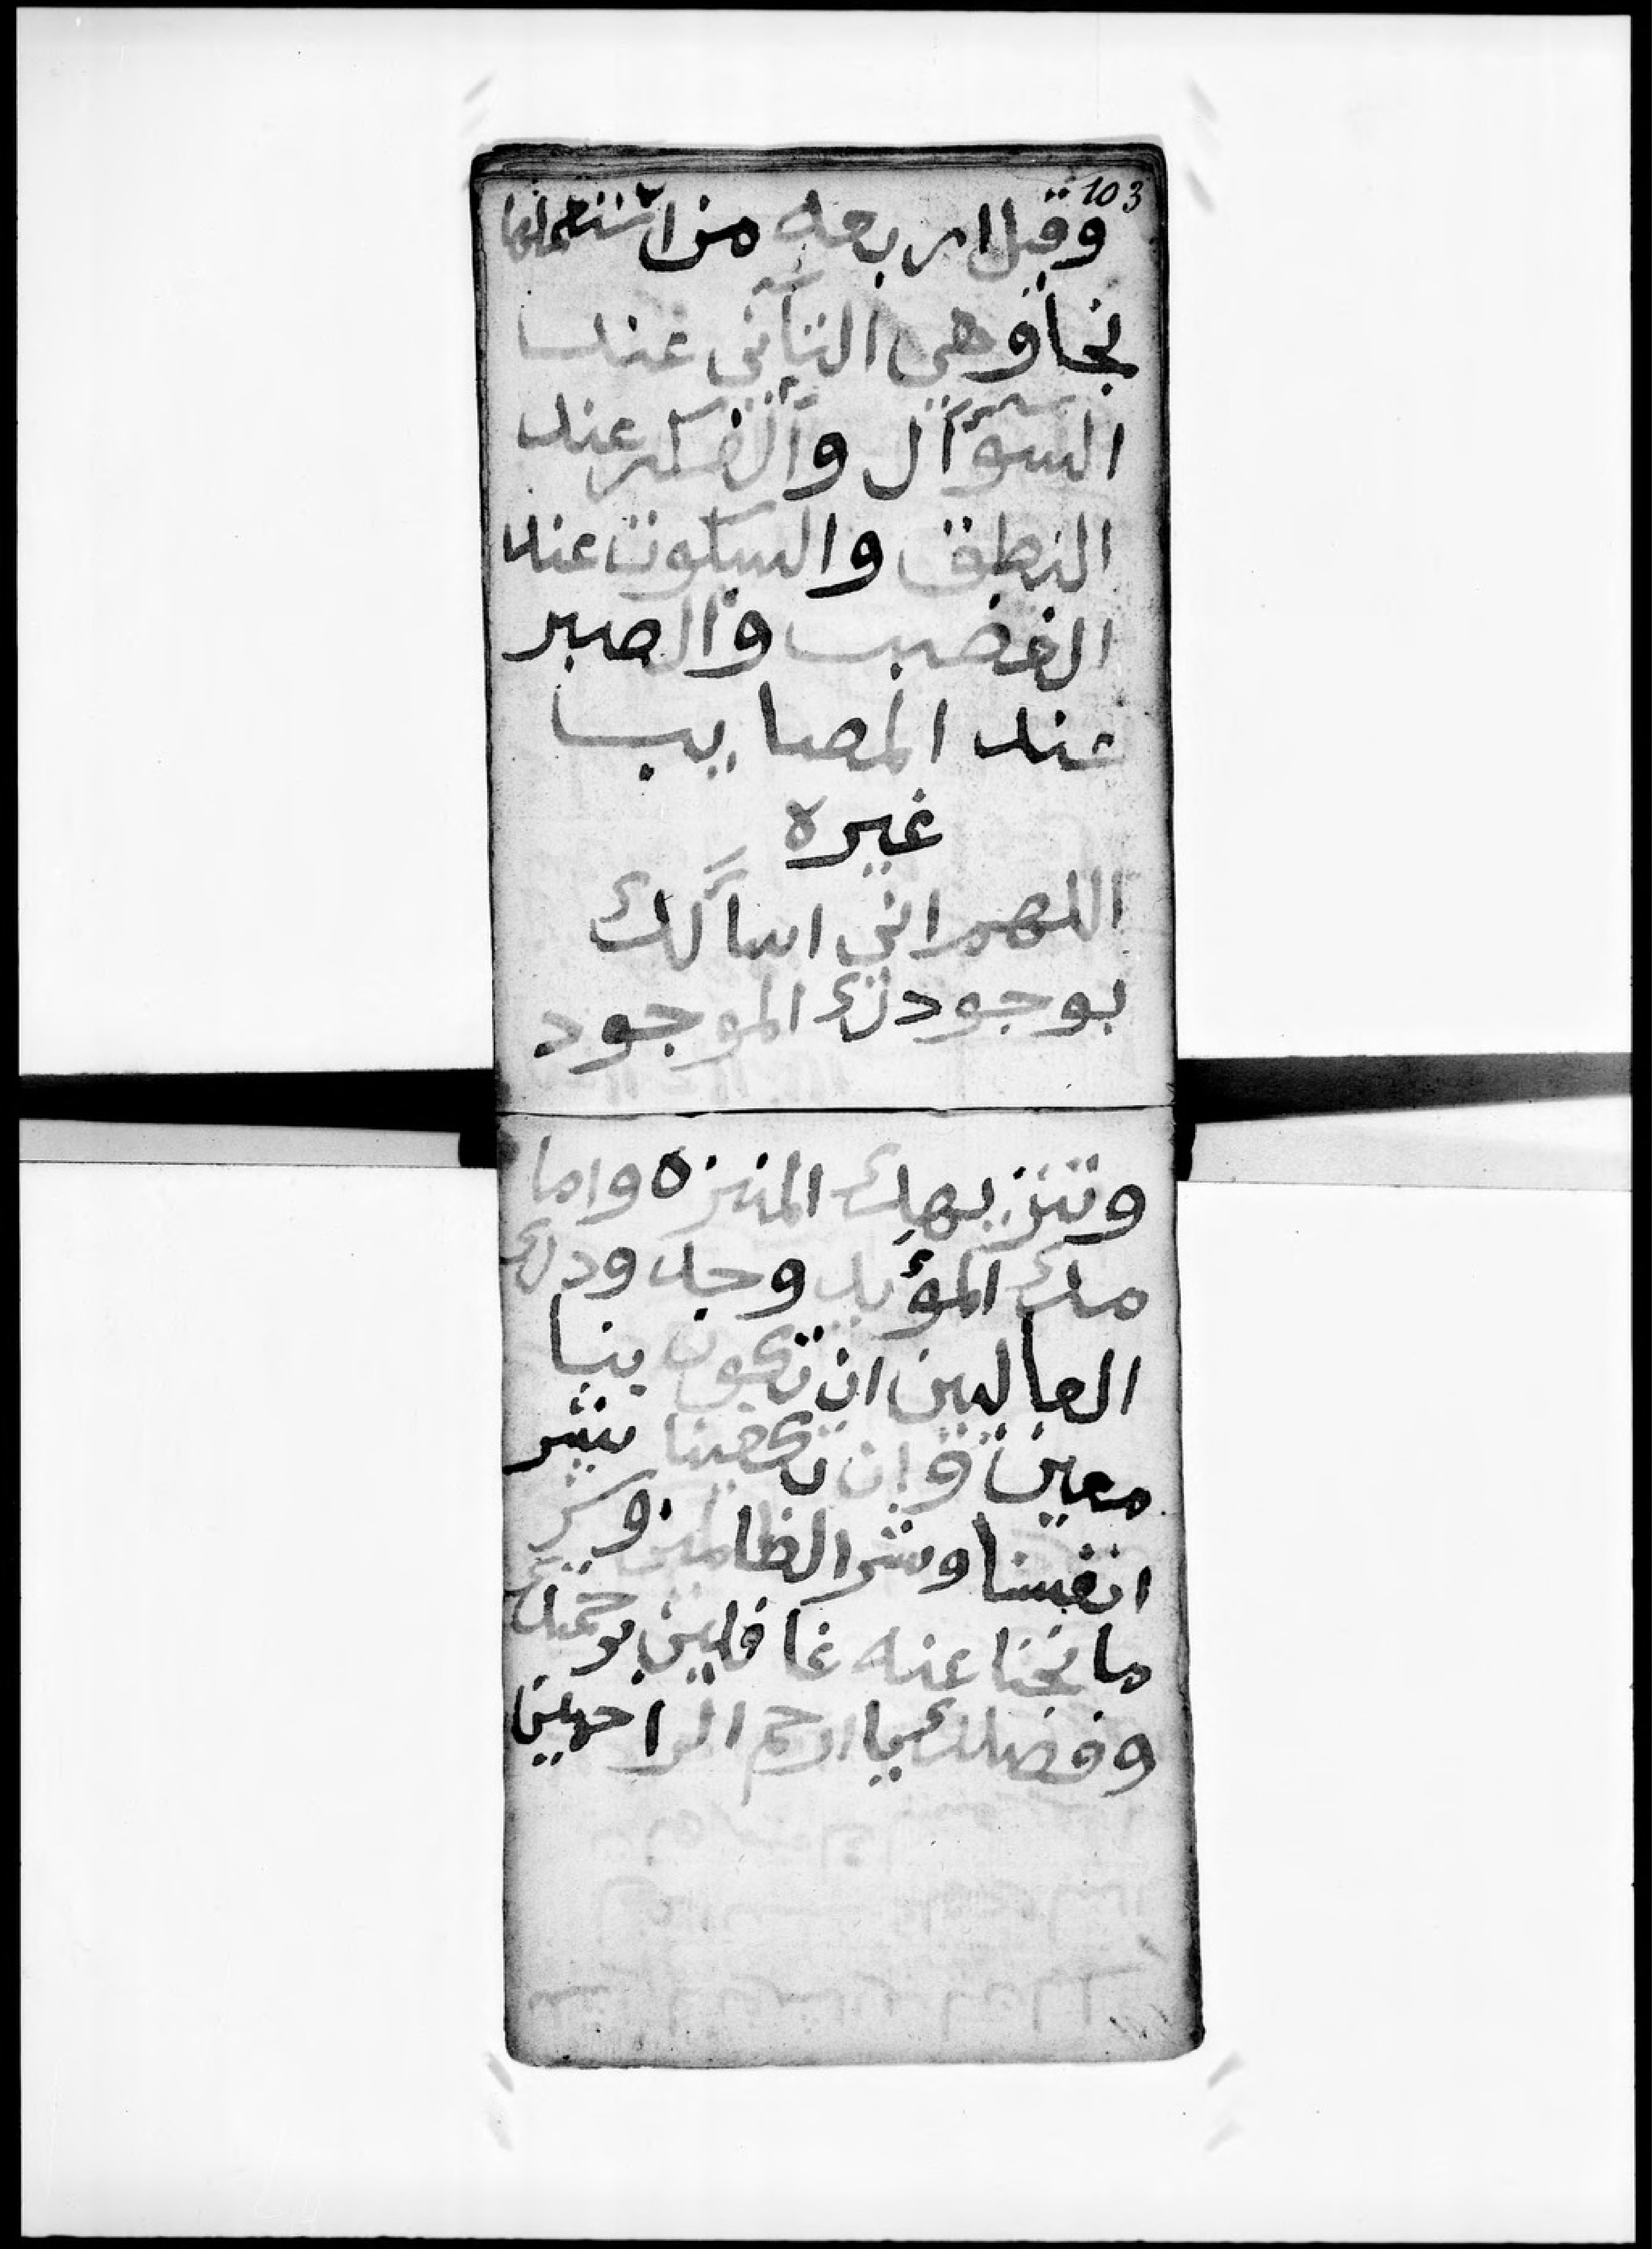 103
وقيل اربعه من استعملها
نجا وهي التأني عند
السؤآل والفكر عند
النطق والسكوت عند
الغضب والصبر
عند المصايب
غيره
اللهم اني اسألك
بوجودك الموجود
وتنزيهك المنزه واما
مك المؤيد وحدودك
العاليين ان تكون بنا
معين وان تكفينا شر
انفسنا وشر الظالمين وشر
ما نحنا عنه غافلين
وفضلك يا ارحم الراحمين